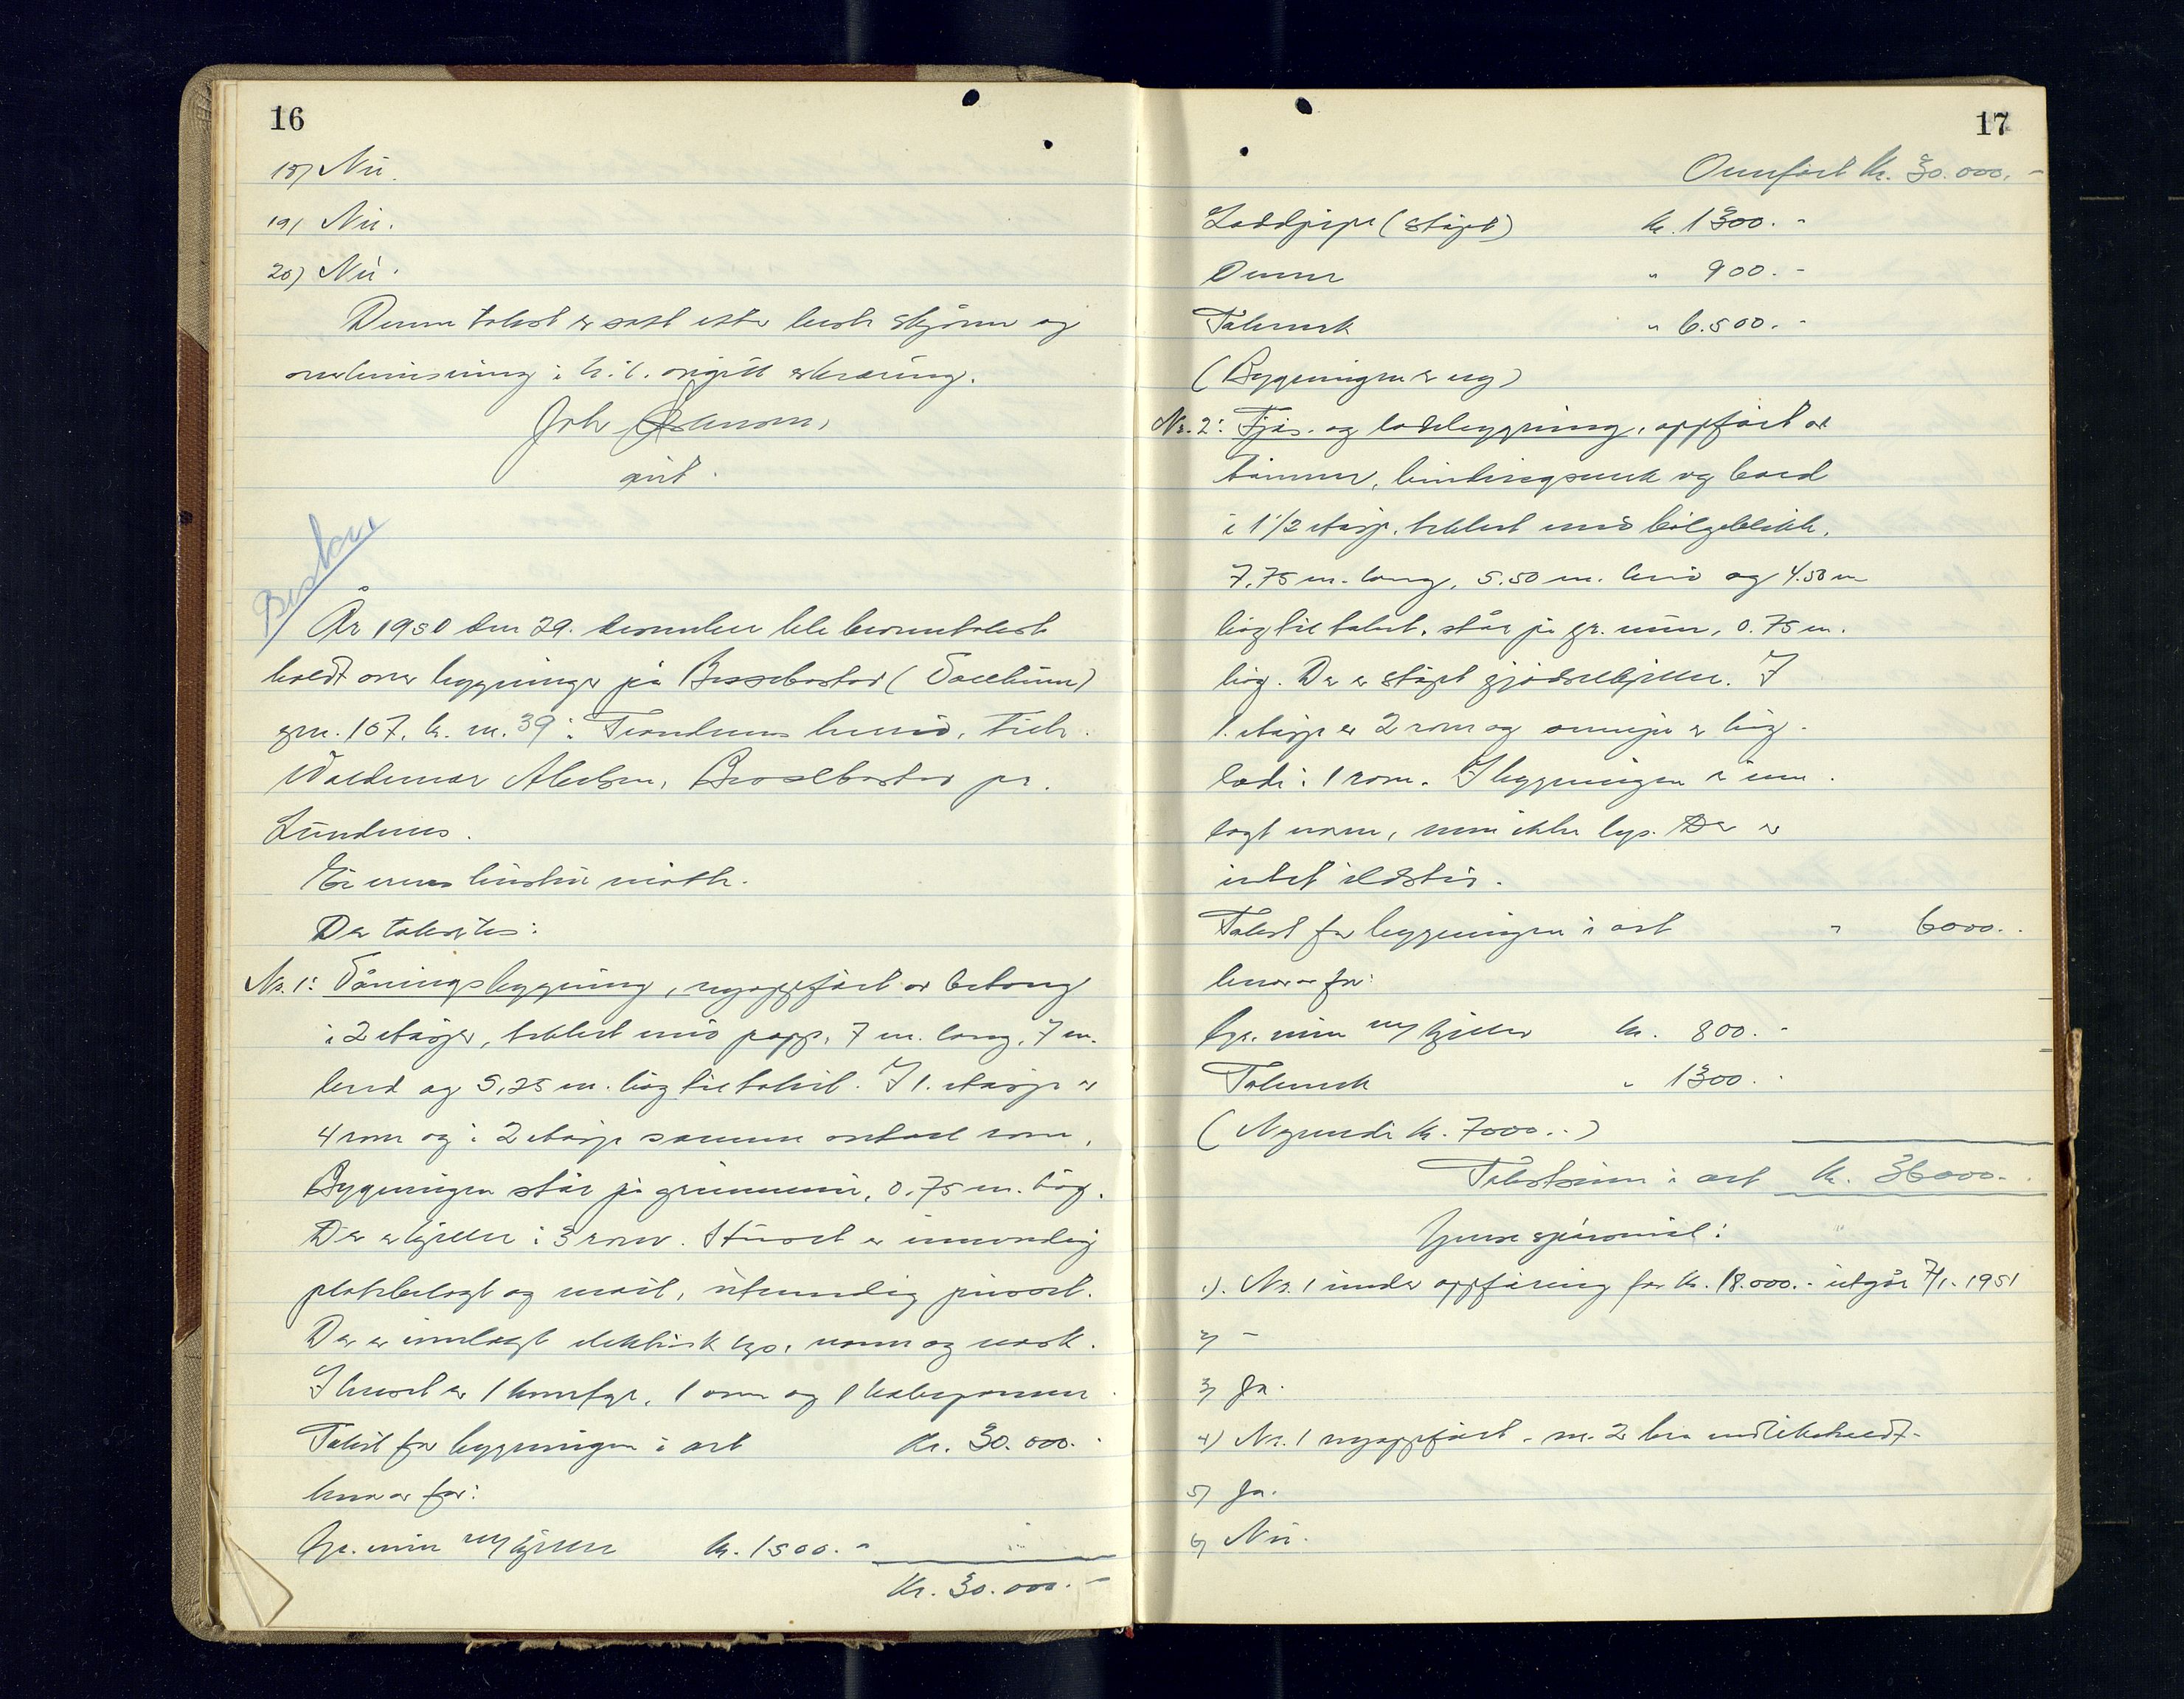 16
18) Nei.
19) Nei.
20) Nei.
Denne takst er satt etter beste skjønn og
overbevisning i h.t. avgitt erklæring.
Joh
Beskar
År 1950 den 29. desember ble branntakst
holdt over bygninger på Bessebostad (Solheim)
grn. 107, br. nr. 39 i Trondenes herred, tilh.
Waldemar Abelsen, Bessebostad pr.
Lundenes.
Eierens hustru møtte.
Der taksertes:
Nr. 1: Våningsbygning, nyoppført av betong
i 2 etasjer, tekket med papp, 7 m. lang, 7 m.
bred og 5,25 m. høg til takst. I 1. etasje er
4 rom og i 2 etasje samme antall rom.
Bygningen står på grunnmur, 0.75 m. høg.
Der er kjeller i 3 rom. Huset er innvendig
platebelagt og malt, utvendig pusset.
Der er innlagt elektrisk lys, vann og vask.
I huset er 1 komfyr, 1 ovn og 1 kokepanne
Takst for bygningen i alt Kr. 30.000.-
herav for:
Gr. mur m/kjeller kr. 1500.-
Kr. 30.000.-
17
Overført Kr. 30.000.-
Loddpipe (støpt) kr. 1300.-
Ovner " 900.-
Takverk " 6.500.-
(Bygningen er ny)
Nr. 2: Fjøs- og ladebygning, oppført av
tømmer, bindingsverk og bord
i 1 1/2 etasje, tekket med bølgeblikk,
7.75 m. lang, 5.50 m. bred og 4.50 m
høg til takst, står på gr. mur, 0.75 m.
høg. Der er støpt gjødselkjeller. I
1. etasje er 2 rom og ovenpå er høy-
lade i 1 rom. I bygningen er inn-
lagt vann, men ikke lys. Der er
intet ildsted.
Takst for bygningen i alt " 6000.-
herav for:
Gr. mur m/kjeller kr. 800.-
Takverk " 1300.-
(Nyverdi kr. 7000.-)
Takstsum i alt kr. 36000.-
Spørsmål:
1). Nr. 1 under oppføring for kr. 18.000.- utgår 7/1-1951
2) -
3) Ja.
4) Nr. 1 nyoppført - nr. 2 bra vedlikeholdt-
5) Ja.
6) Nei.